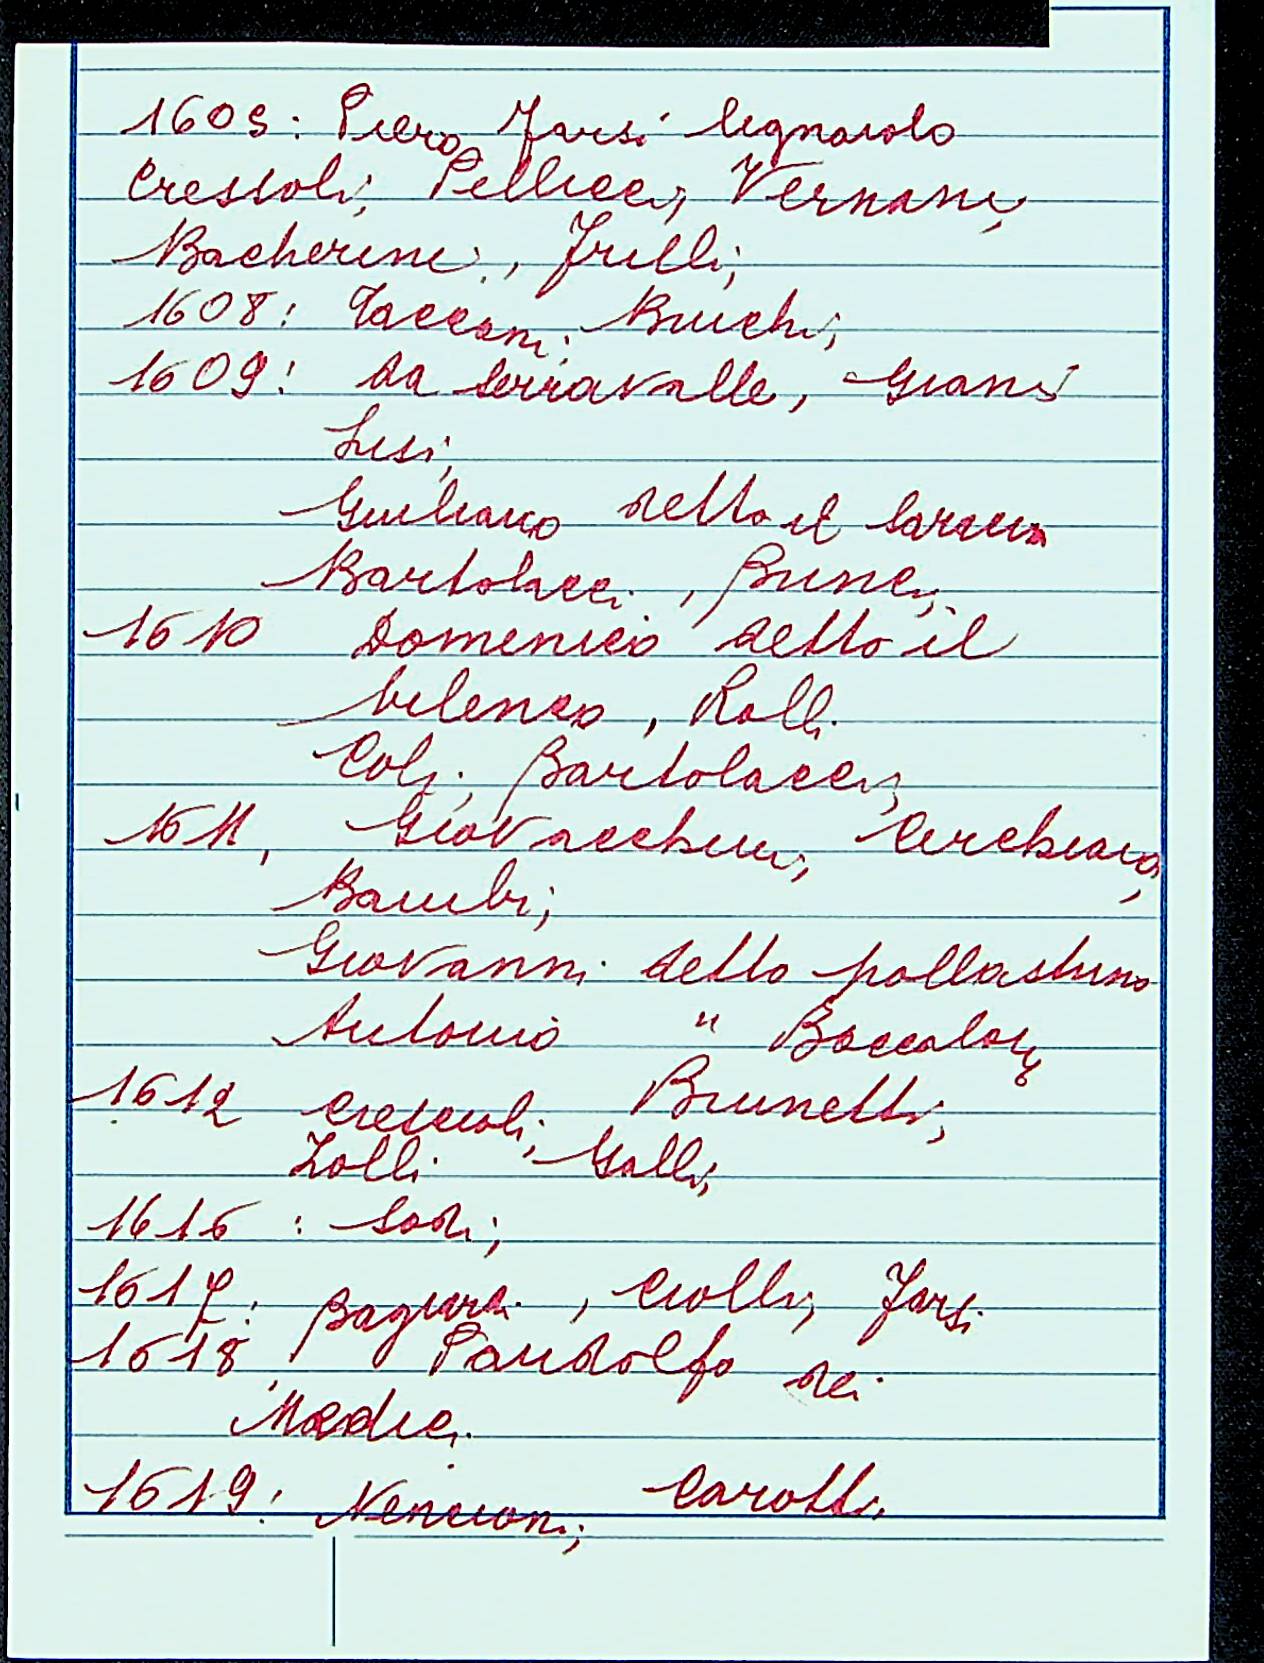 1605: Piero Farsi legnaiolo
Crescioli, Pellicci, Vernani,
Bacherini, Frilli,
1608: Tacconi, Bruchi,
1609: da Serravalle, Giani
Lisi,
Giuliano detto il
Bartolacci, Buneli,
1610 Domenico detto il
bilenco, Rolli
Coli, Bartolacci,
1611, Giovacchini, Cerchiaio,
Bambi,
Giovanni detto pollastrino
Antonio " Boccalory
1612 Crescioli, Brunetti,
Zolli Galli,
1616 : Sodi,
1617: Bagiardi, Ciolli, Farsi
1618, Pandolfo dei
Medici
1619: Nencioni, Carotti,